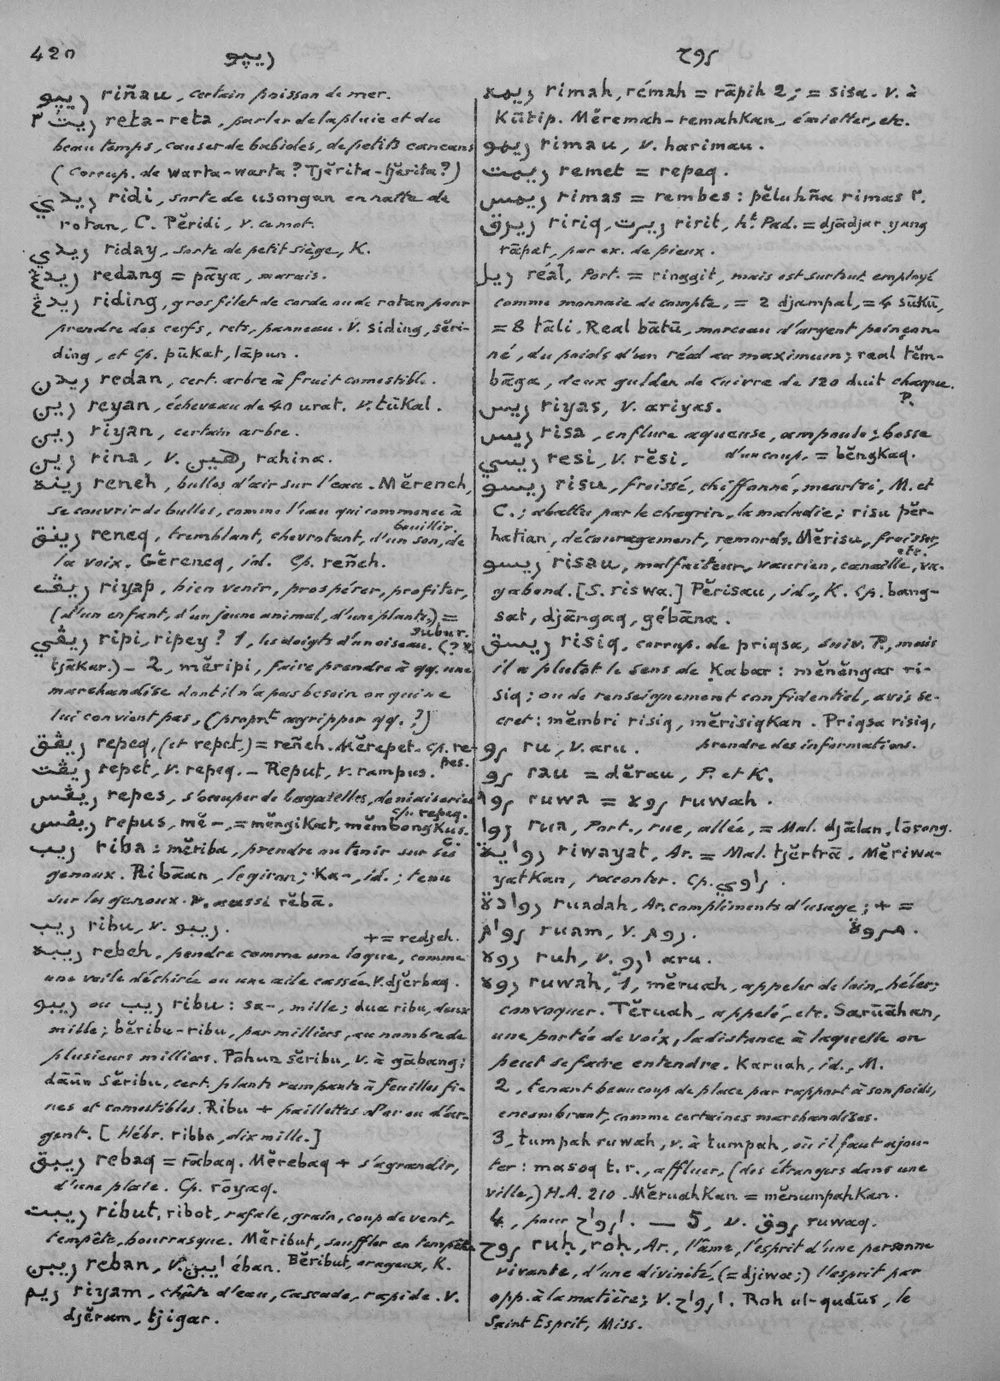 420
ريڽو
روح
ريڽو riñau, certain poisson de mer.
ريت٢ reta-reta, parler de la pluie et du
beau temps, causer de babioles, de petits cancans
(Corrup. de warta-warta? Tjĕrita-tjĕrita?)
ريدي ridi, sorte de usongan en natte de
rotan, C. Pĕridi, v. ce mot.
ريدي riday, sorte de petit siège, K.
ريدڠ redang = pāya, marais.
ريدڠ riding, gros filet de corde ou de rotan, pour
prendre des cerfs, rets, panneau. V. siding, sĕri-
ding, et cp. pūkat, lāpun.
ريدن redan, cert. arbre à fruit comestible.
رين reyan, écheveau de 40 urat. v. tūkal.
رين riyan, certain arbre.
رين rina, v. رهين rahina.
رينه reneh, bulles d'air sur l'eau. Mĕreneh,
se couvrir de bulles, comme l'eau qui commence à
bouillir.
رينق reneq, tremblant, chevrotant, d'un son, de
la voix. Gĕreneq, id. Cp. reñeh.
ريڤ riyap, bien venir, prospérer, profiter,
(d'un enfant, d'un jeune animal, d'une plante,) =
subur.
ريڤي ripi, ripey? 1, les doigts d'un oiseau. (? v.
tjākar.) – 2, mĕripi, faire prendre à qq. une
marchandise dont il n'a pas besoin ou qui ne
lui convient pas, (propr.t agripper qq. ?)
ريڤق repeq, (et repet.) = reñeh. Mĕrepet. cp. re-
pes.
ريڤت repet, v. repeq. – Reput, v. rampus.
ريڤس repes, s'occuper de bagatelles, de niaiseries
cp. repeq.
ريڤس repus, mĕ-, = mĕngikat, mĕmbongkus.
ريب riba: mĕriba, prendre ou tenir sur ses
genoux. Ribāan, le giron; Ka-, id.; tenu
sur les genoux. v. aussi rĕbā.
ريب ribu, v. ريبو.
+ = redjeh.
ريبه rebeh, pendre comme une loque, comme
une voile déchirée ou une aile cassée, v. djĕrbaq.
ريبو ou ريب ribu: sa-, mille; dua ribu, deux
mille; bĕribu-ribu, par milliers, au nombre de
plusieurs milliers. Pōhun sĕribu, v. à gābang;
dāūn sĕribu, cert. plante rampante à feuilles fi-
nes et comestibles. Ribu + paillettes d'or ou d'ar-
gent. [Hébr. ribbo, dix mille.]
ريبق rebaq = rābaq. Mĕrebaq + s'agrandir,
d'une plaie. Cp. rōyaq.
ريبت ribut, ribot, rafale, grain, coup de vent,
tempête, bourrasque. Mĕribut, souffler en tempête
Bĕribut, orageux, K.
ريبن reban, v. ايبن éban.
ريم riyam, chûte d'eau, cascade, rapide. v.
djĕram, tjigar.
ريمه rimah, rémah = rāpih 2; = sisa. v. à
Kūtip. Mĕremah-remahkan, émietter, etc.
ريمو rimau, v. harimau.
ريمت remet = repeq.
ريمس rimas = rembes: pĕluhña rimas ٢.
ريرق ririq, ريرت ririt, h.t Pad. = djādjar yang
rāpat, par ex. de pieux.
ريل réal, Port. = ringgit, mais est surtout employé
comme monnaie de compte, = 2 djampal, = 4 sūkū,
= 8 tāli. Real bātū, morceau d'argent poinçon-
né, du poids d'un réal au maximum; real tĕm-
bāga, deux gulden de cuivre de 120 duit chaque.
P.
ريس riyas, v. ariyas.
ريس risa, enflure aqueuse, ampoule; bosse
d'un coup, = bĕngkaq.
ريسي resi, v. rĕsi.
ريسو risu, froissé, chiffonné, meurtri, M. et
C.; abattu par le chagrin, la maladie; risu pĕr-
hatian, découragement, remords. Mĕrisu, froisser,
etc.
ريسو risau, malfaiteur, vaurien, canaille, va-
gabond. [S. riswa.] Pĕrisau, id., K. Cp. bang-
sat, djāngaq, gĕbāna.
ريسق risiq, corrup. de priqsa, suiv. P., mais
il a plutôt le sens de Kabar: mĕnĕngar ri-
siq; ou de renseignement confidentiel, avis se-
cret: mĕmbri risiq, mĕrisiqkan. Priqsa risiq,
prendre des informations.
رو ru, v. aru.
رو rau = dĕrau, P. et K.
روا ruwa = روه ruwah.
روا rua, Port., rue, allée, = Mal. djālan, lōrong.
رواية riwayat, Ar. = Mal. tjĕrtrā. Mĕriwa-
yatkan, raconter. Cp. راوي.
روادة ruadah, Ar. compliments d'usage; + =
مروة.
روام ruam, v. روم.
روه ruh, v. ارو aru.
روه ruwah, 1, mĕruah, appeler de loin, héler;
convoquer. Tĕruah, appelé, etc. Sarūāhan,
une portée de voix, la distance à laquelle on
peut se faire entendre. Karuah, id., M.
2, tenant beaucoup de place par rapport à son poids,
encombrant, comme certaines marchandises.
3, tumpah ruwah, v. à tumpah, où il faut ajou-
ter: masoq t. r., affluer, (des étrangers dans une
ville,) H.A. 210. Mĕruahkan = mĕnumpahkan.
4, pour ارواح. — 5, v. روق ruwaq.
روح ruh, roh, Ar., l'âme, l'esprit d'une personne
vivante, d'une divinité, (= djiwa;) l'esprit par
opp. à la matière; v. ارواح. Roh ul-qudūs, le
Saint Esprit, Miss.